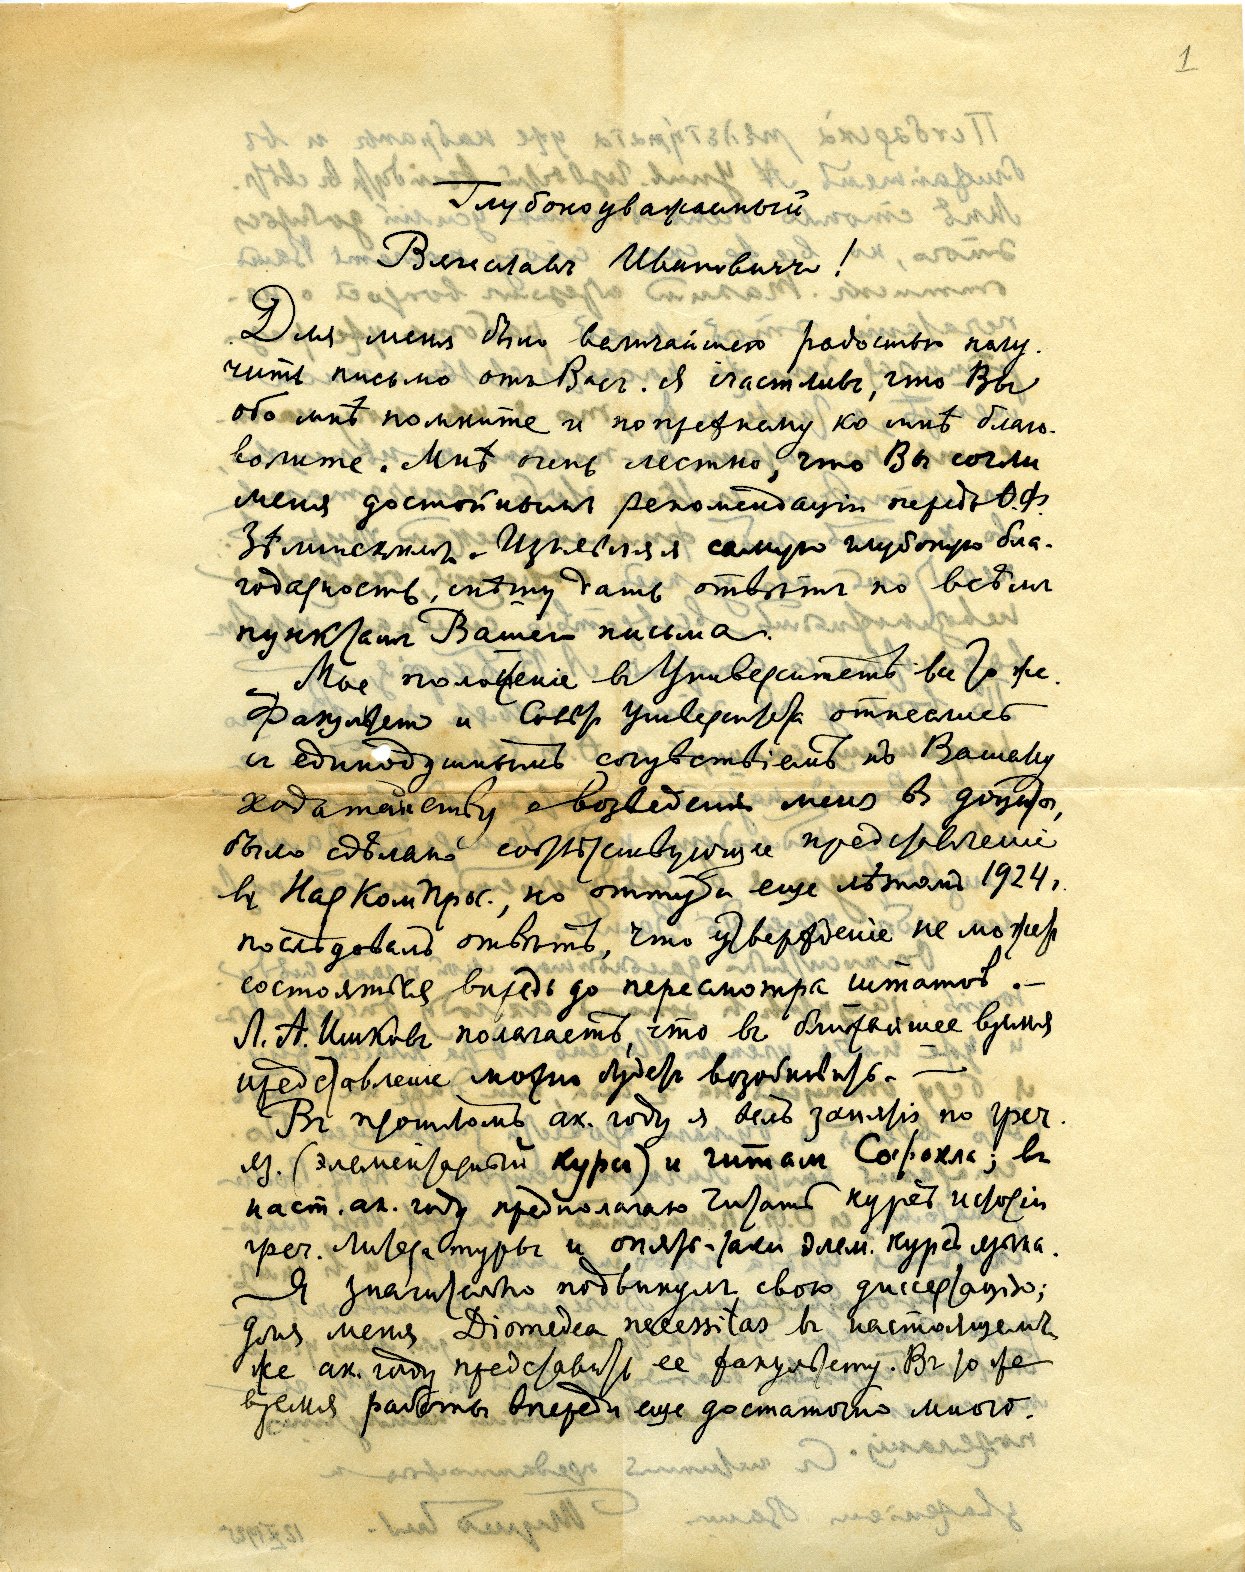 1
Глубокоуважаемый
Вячеславъ Ивановичъ!
Для меня было величайшею радостью полу-
чить письмо отъ Васъ. Я счастливъ, что Вы
обо мнѣ помните и попрежнему ко мнѣ благо-
волите. Мнѣ очень лестно, что Вы сочли
меня достойнымъ рекомендаціи передъ Ѳ.Ф.
Зѣлинскимъ. Изъявляя самую глубокую бла-
годарность, спѣшу дать отвѣтъ по всѣмъ
пунктамъ Вашего письма.
Мое положеніе въ Университетѣ все то же.
Факультетъ и Совѣтъ Университета отнеслись
съ единодушнымъ сочувствіемъ къ Вашему
ходатайству о возведеніи меня в доценты,
было сдѣлано соотвѣтствующее представленіе
въ НарКомПрос., но оттуда еще лѣтомъ 1924 г.
послѣдовалъ отвѣтъ, что утвержденіе не можетъ
состояться впредь до пересмотра штатовъ. –
Л. А. Ишковъ полагаетъ, что въ ближайшее время
представленіе можно будетъ возобновить. –
Въ прошломъ ак. году я велъ занятія по греч.
яз. (элементарный курсъ) и читалъ Софокла; въ
наст. ак. году предполагаю читать курсъ исторіи
греч. литературы и опять-таки элем. курсъ языка.
Я значительно подвинулъ свою диссертацію;
для меня Diomedea necessitas въ настоящемъ
же ак. году представить ее факультету. Въ то же
время работы впереди еще достаточно много.